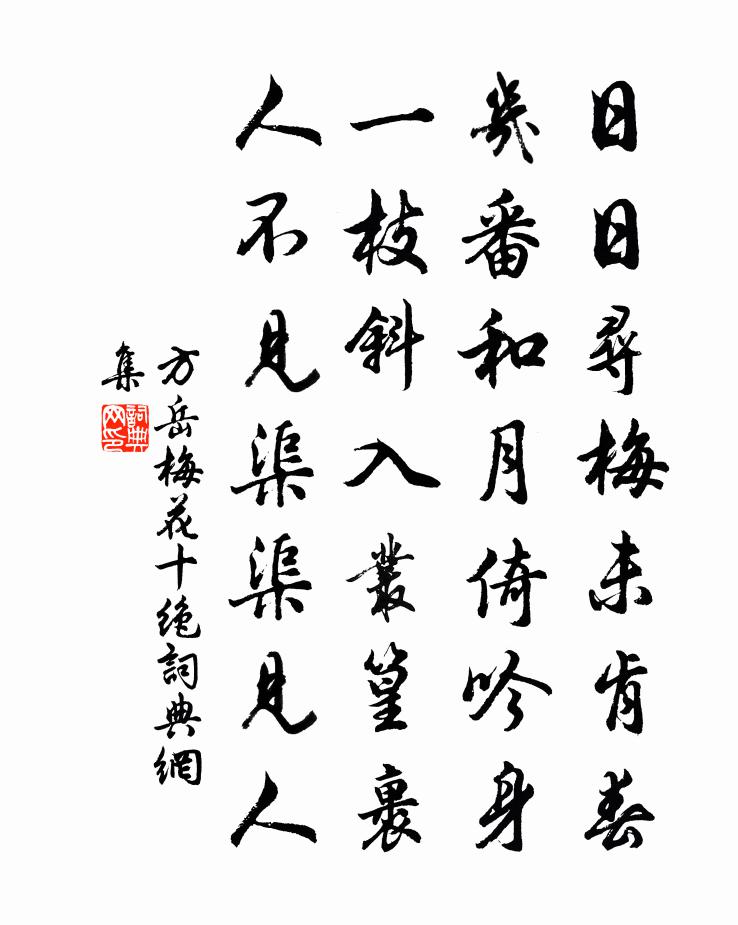 日日尋梅未肯春
幾番和月倚吟身
一枝斜入叢篁裏
人不見渠渠見人
方岳梅花十絕詞典網
集
詞典
网印